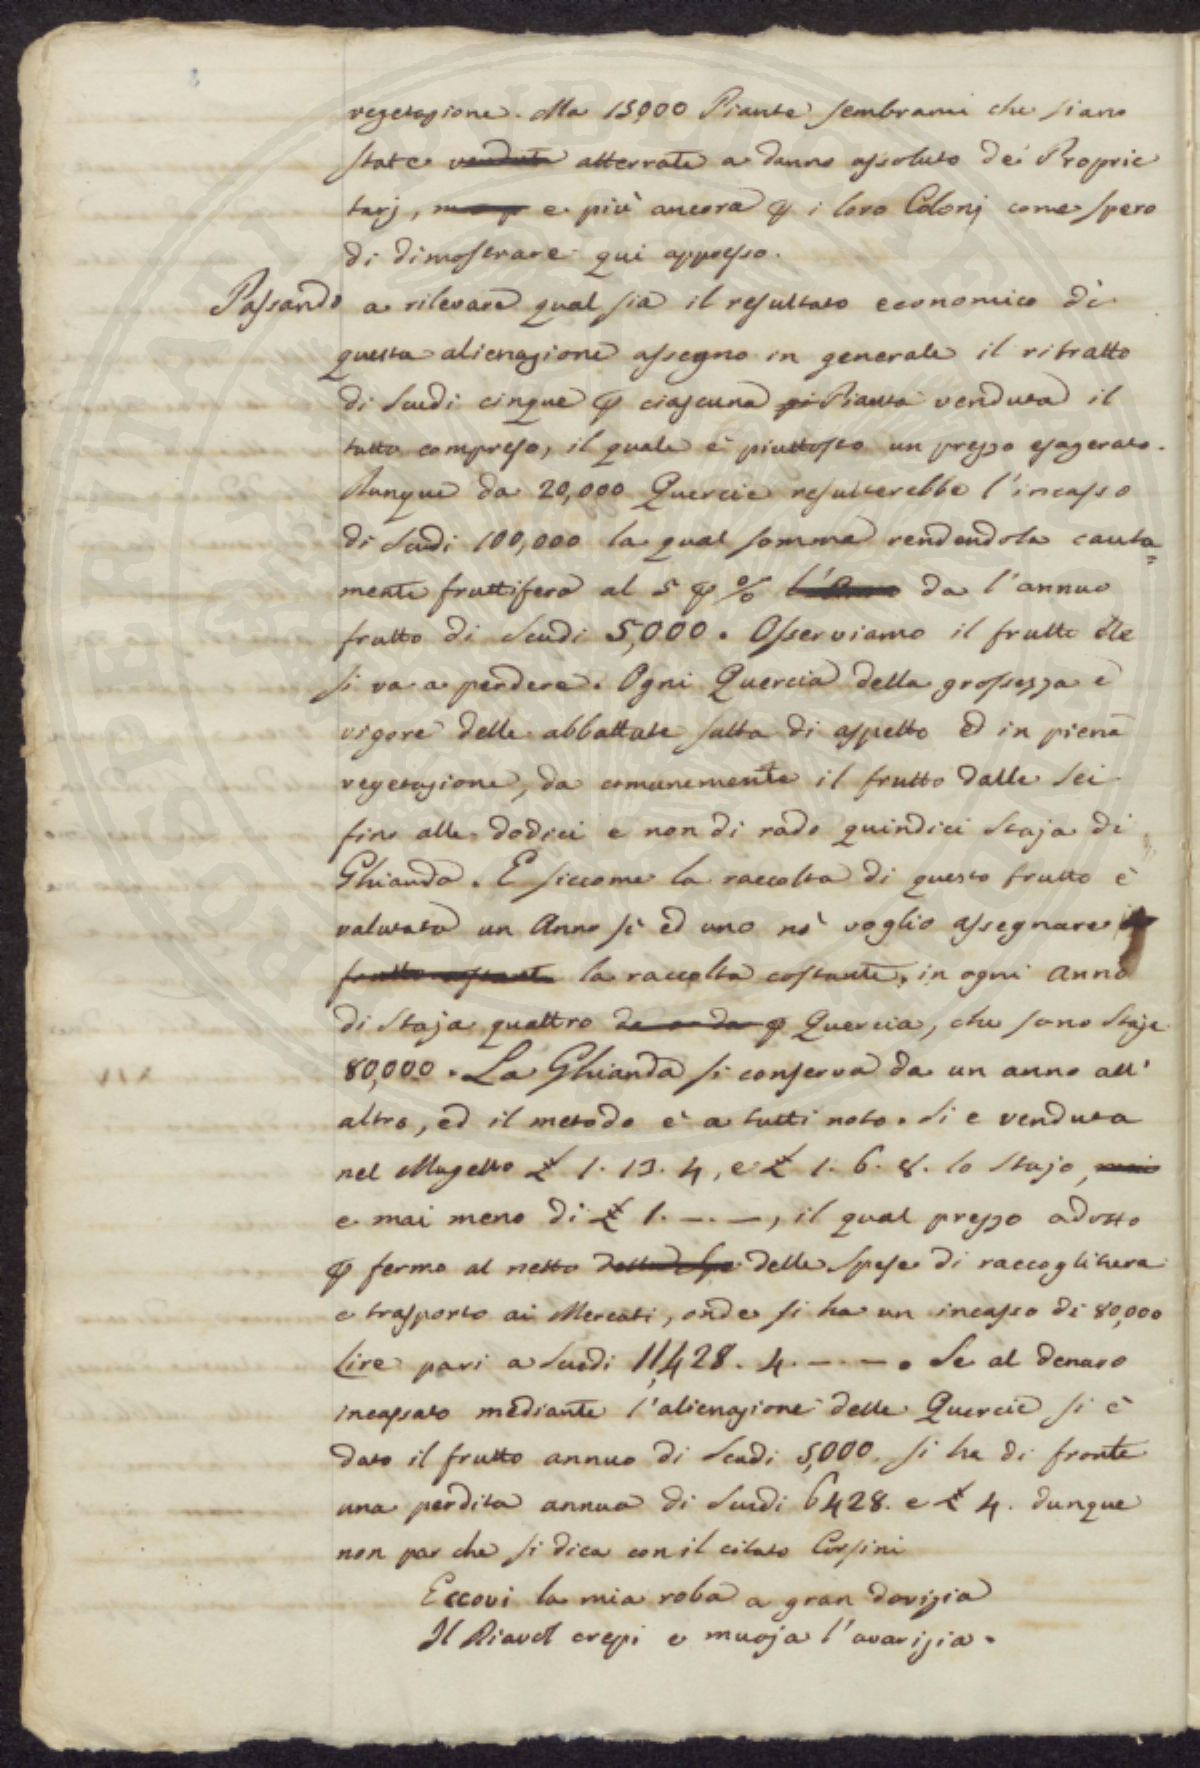 vegetazione. Ma 15,000 Piante sembrami che siano
state venduta atterrate a danno assoluto de' Proprie
tarj, e più ancora ꝑ i loro Colonj come spero
di dimostrare qui appresso.
Passando a rilevare qual sia il resultato economico di
questa alienazione assegno in generale il ritratto
di Scudi cinque ꝑ ciascuna pi Pianta venduta il
tutto compreso, il quale è piuttosto un prezzo esagerato.
Dunque da 20,000 Quercie resulterebbe l'incasso
di Scudi 100,000 la qual somma rendendola cauta=
mente fruttifera al 5 ꝑ % da l'annuo
frutto di Scudi 5,000. Osserviamo il frutto che
si va a perdere. Ogni Quercia della grossezza e
vigore delle abbattute salta di aspetto ed in piena
vegetazione, da comunemente il frutto dalle sei
fino alle dodici e non di rado quindici Staja di
Ghianda. E siccome la raccolta di questo frutto è
valutata un Anno sì ed uno nò voglio assegnare
frutto costante la raccolta costante, in ogni anno
di Staja quattro ꝑ Quercia, che sono Staje
80,000. La Ghianda si conserva da un anno all'
altro, ed il metodo è a tutti noto. Si e venduta
nel Mugello £ 1. 13. 4, e £ 1. 6. 8. lo Stajo, mai
e mai meno di £ 1. —. —, il qual prezzo adotto
ꝑ fermo al netto delle Spese di raccoglitura
e trasporto ai Mercati, onde si ha un incasso di 80,000
Lire pari a Scudi 11,428. 4. — . — . Se al denaro
incassato mediante l'alienazione delle Quercie si è
dato il frutto annuo di Scudi 5,000. si ha di fronte
una perdita annua di Scudi 6428. e £ 4. dunque
non par che si dica con il citato Corsini
Eccovi la mia roba a gran dovizia
Il Diavol crepi e muoja l'avarizia.